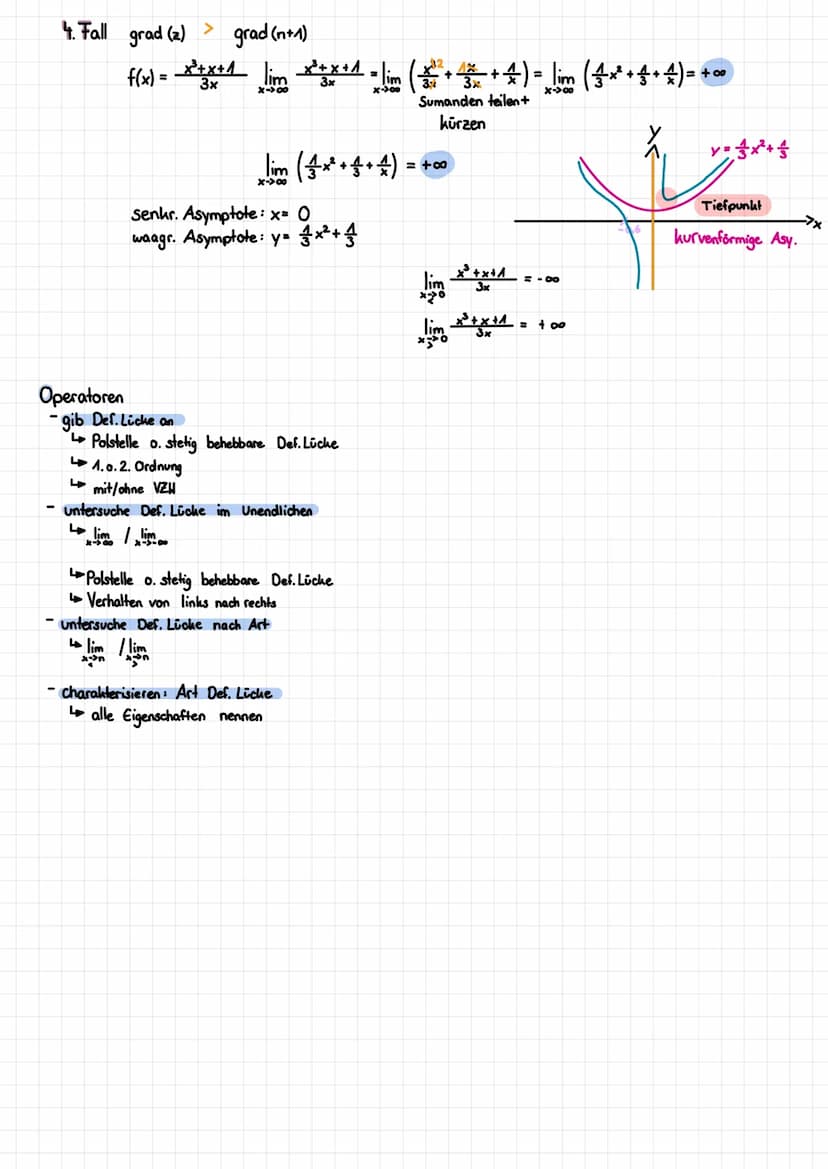 4. Fall grad (z) > grad (n+1)
f(x) = x³+x+1/3x lim x->∞ x³+x+1/3x = lim x->∞ (x³2/3x + 1x/3x + 1/x) = lim x->∞ (1/3x² + 1/3 + 1/x) = +∞
Sumanden teilen+
kürzen
y
y = 1/3x² + 1/3
lim x->∞ (1/3x² + 1/3 + 1/x) = +∞
Tiefpunkt
senkr. Asymptote: x= 0
x
waagr. Asymptote: y= 1/3x² + 1/3
kurvenförmige Asy.
lim x->0 < x³+x+1/3x = -∞
lim x->0 > x³+x+1/3x = +∞
Operatoren
- gib Def. Lücke an
↳ Polstelle o. stetig behebbare Def. Lücke
↳ 1. o. 2. Ordnung
↳ mit/ohne VZW
- untersuche Def. Lücke im Unendlichen
↳ lim x->∞ / lim x->-∞
↳ Polstelle o. stetig behebbare Def. Lücke
↳ Verhalten von links nach rechts
- untersuche Def. Lücke nach Art
↳ lim x->n < / lim x->n >
- charakterisieren: Art Def. Lücke
↳ alle Eigenschaften nennen